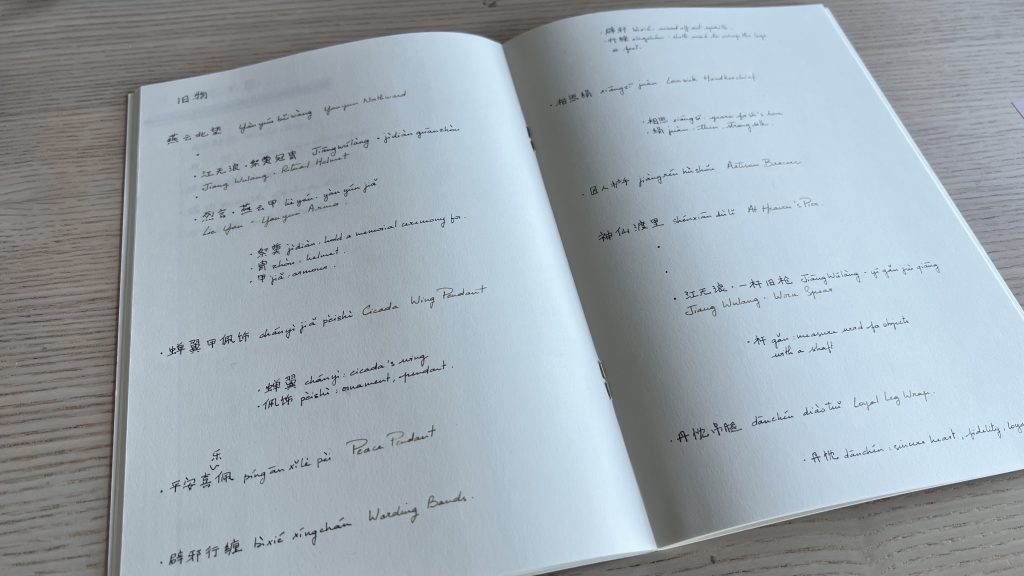 旧物
燕云北望 Yànyún běiwàng Yanyun Northward
· 江无浪·祭奠冠胄 Jiāngwúlàng · jìdiàn guānzhòu
Jiang Wulang · Ritual Helmet
· 烈言·燕云甲 liè yán · yàn yún jiǎ
Lie Yan · Yanyun Armor
· 祭奠 jìdiàn : hold a memorial ceremony for.
· 胄 zhòu : helmet.
· 甲 jiǎ : armour.
· 蝉翼甲佩饰 chányì jiǎ pèishì Cicada Wing Pendant
· 蝉翼 chányì : cicada's wing
· 佩饰 pèishì : ornament, pendant.
乐
· 平安喜佩 píng ān xǐ lè pèi Peace Pendant
· 辟邪行缠 bìxié xíngchán Warding Bands.
· 辟邪 bìxié : ward off evil spirits
· 行缠 xíngchán : cloth used to wrap the legs
or feet.
· 相思绢 xiāngsī juàn Lovesick Handkerchief
· 相思 xiāngsī :
· 绢 juàn : thin, strong silk.
· 匠人护手 jiàng rén hù shǒu Artisan Bracer
神仙渡里 shénxiān dù lǐ At Heaven's Pier
· 江无浪·一杆旧枪 Jiāngwúlàng · yī gǎn jiù qiāng
Jiang Wulang · Worn Spear
· 杆 gǎn : measure word for objects
with a shaft
· 丹忱吊腿 dānchén diào tuǐ Loyal Leg Wrap.
· 丹忱 dānchén : sincere heart, fidelity,